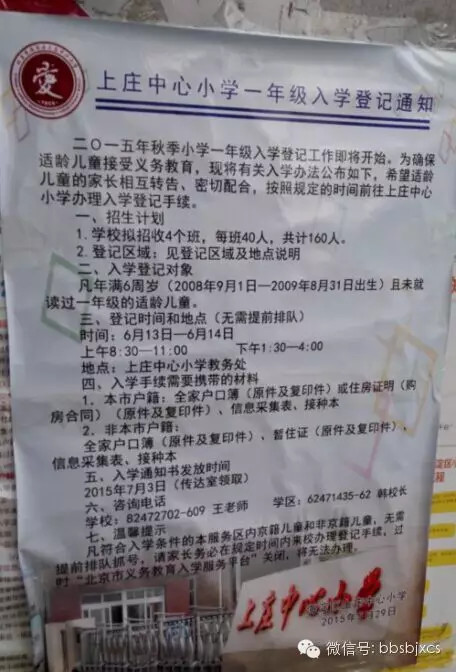 愛
上庄中心小学一年级入学登记通知
二〇一五年秋季小学一年级入学登记工作即将开始。为确保
适龄儿童接受义务教育,现将有关入学办法公布如下,希望适龄
儿童的家长相互转告、密切配合,按照规定的时间前往上庄中心
小学办理入学登记手续。
一、招生计划
1. 学校拟招收4个班,每班40人,共计160人。
2. 登记区域:见登记区域及地点说明
二、入学登记对象
凡年满6周岁(2008年9月1日—2009年8月31日出生)且未就
读过一年级的适龄儿童。
三、登记时间和地点(无需提前排队)
时间:6月13日—6月14日
上午8:30—11:00 下午1:30—4:00
地点:上庄中心小学教务处
四、入学手续需要携带的材料
1. 本市户籍:全家户口簿(原件及复印件)或住房证明(购
房合同)(原件及复印件)、信息采集表、接种本
2. 非本市户籍:
全家户口簿(原件及复印件)、暂住证(原件及复印件)、
信息采集表、接种本
五、入学通知书发放时间
2015年7月3日(传达室领取)
六、咨询电话
学校:82472702-609 王老师 学区:62471435-62 韩校长
七、温馨提示
凡符合入学条件的本服务区内京籍儿童和非京籍儿童,无需
提前排队抓号,请家长务必在规定时间内来校办理登记手续,过
时"北京市义务教育入学服务平台"关闭,将无法办理。
上庄中心小学
中心小学
2015年 月29日
微信号: bbsbjxcs